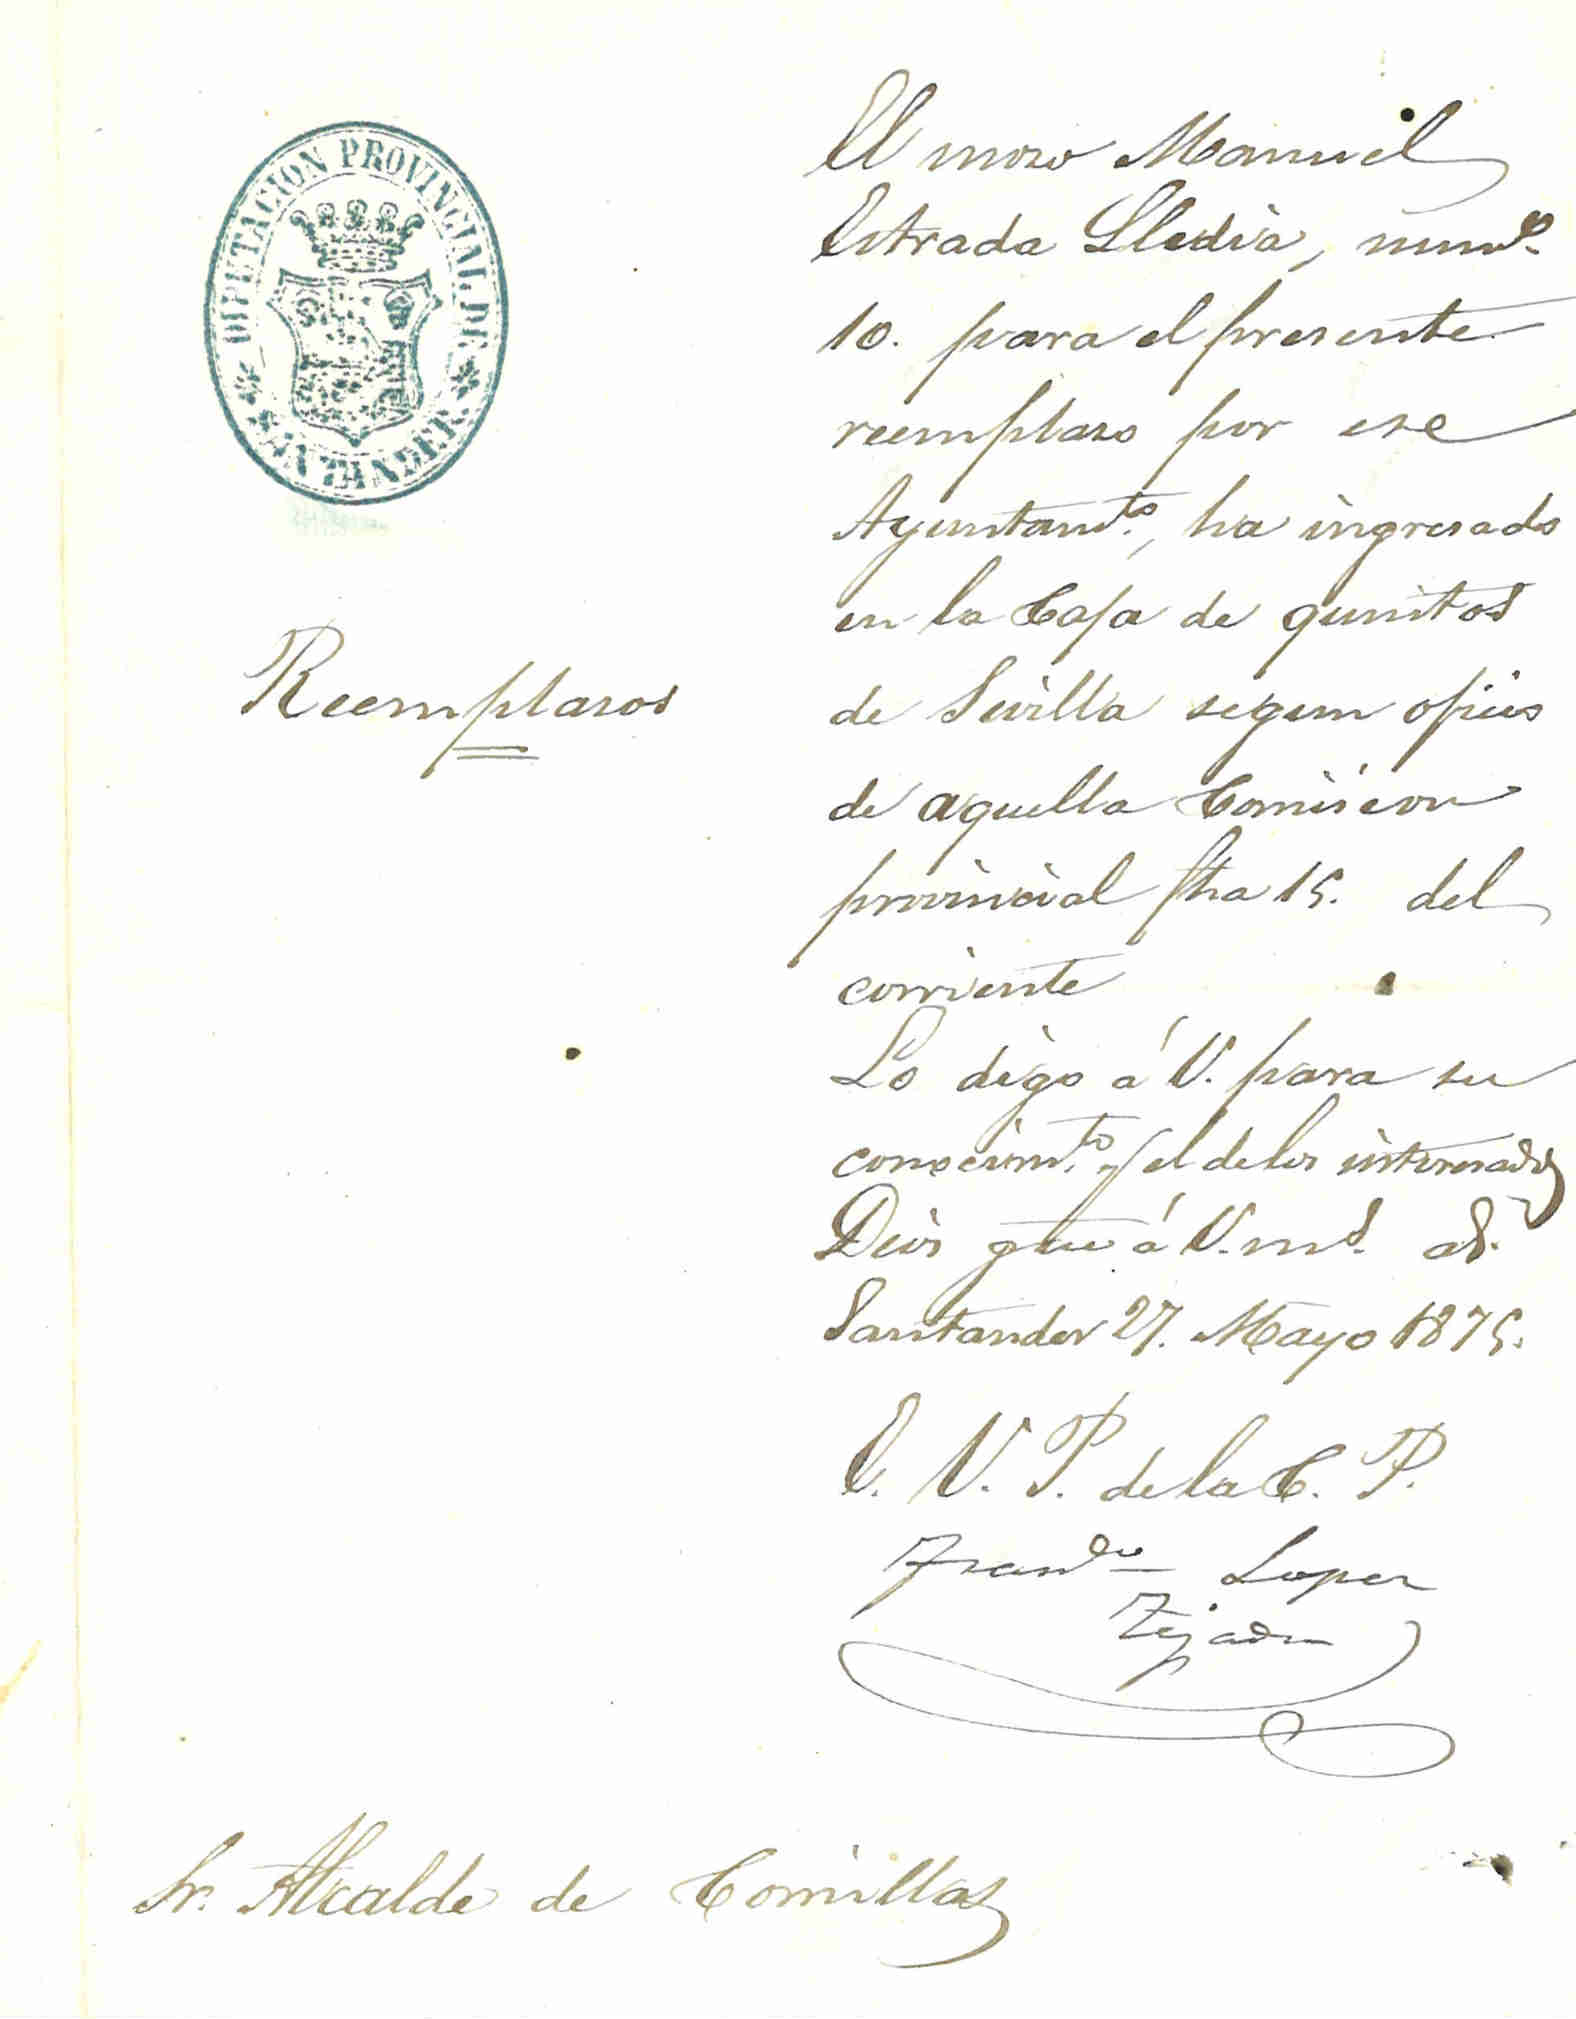 DIPUTACION PROVINCIAL DE
SANTANDER
Reemplasos
El moso Manuel
Estrada Lledia, num.º
10. para el presente
reemplaso por ese
Ayuntam.to, ha ingresado
en la Caja de quintos
de Sevilla segun oficio
de aquella Comision
provincial fha 15. del
corriente
Lo digo á V. para su
conocim.to y el de los interesados
Dios gue á V. ms. as.
Santander 27. Mayo 1875.
E. V. P. de la C. P.
Fran.co Lopez
Tejada
Sr. Alcalde de Comillas